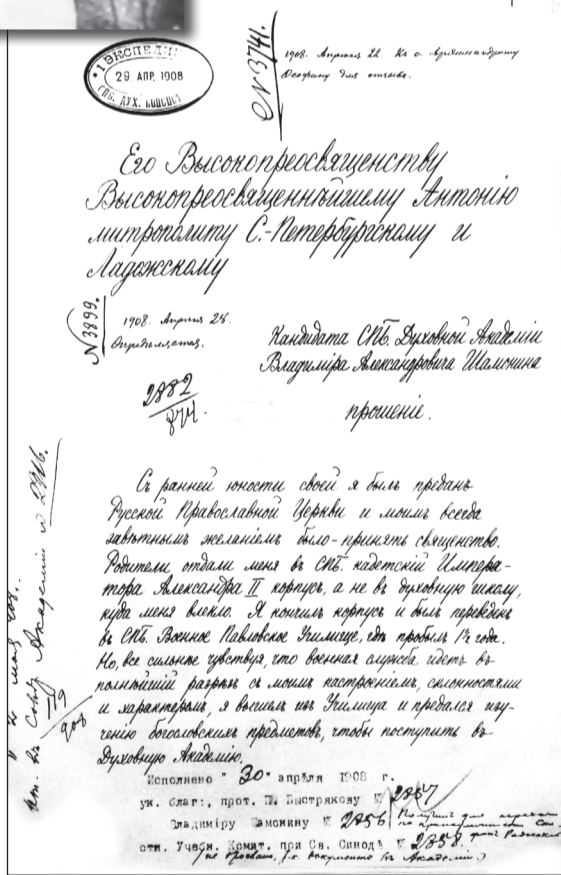 1 ЭКСПЕДИЦ
29 АПР. 1908
ПБ. ДУХ. КОНСИС
№ 3741.
1908. Апрѣля 22. Къ о. Архимандриту
Ѳеофану для отзыва.
Его Высокопреосвященству
Высокопреосвященнѣйшему Антонію
митрополиту С.-Петербургскому и
Ладожскому
№ 3899.
1908. Апрѣля 28.
Опредѣляется.
Кандидата СПБ. Духовной Академіи
Владиміра Александровича Шамонина
2882
874.
прошеніе.
Съ ранней юности своей я былъ преданъ
Русской Православной Церкви и моимъ всегда
завѣтнымъ желаніемъ было - принять священство.
Родители отдали меня въ СПБ. кадетскій Импера-
тора Александра II корпусъ, а не въ духовную школу,
куда меня влекло. Я кончилъ корпусъ и былъ переведенъ
въ СПБ. Военное Павловское Училище, гдѣ пробылъ 1½ года.
Но, все сильнѣе чувствуя, что военная служба идетъ въ
полнѣйшій разрѣзъ съ моимъ настроеніемъ, склонностями
и характеромъ, я вышелъ изъ Училища и предался изу-
ченію богословскихъ предметовъ, чтобы поступить въ
Духовную Академію.
Исполнено "30" апрѣля 1908 г.
ук. благ:, прот. П. Быстрякову № 2857
Владиміру Шамонину № 2856
отн. Учебн. Комит. при Св. Синодѣ № 2858.
документы въ Академіи.)